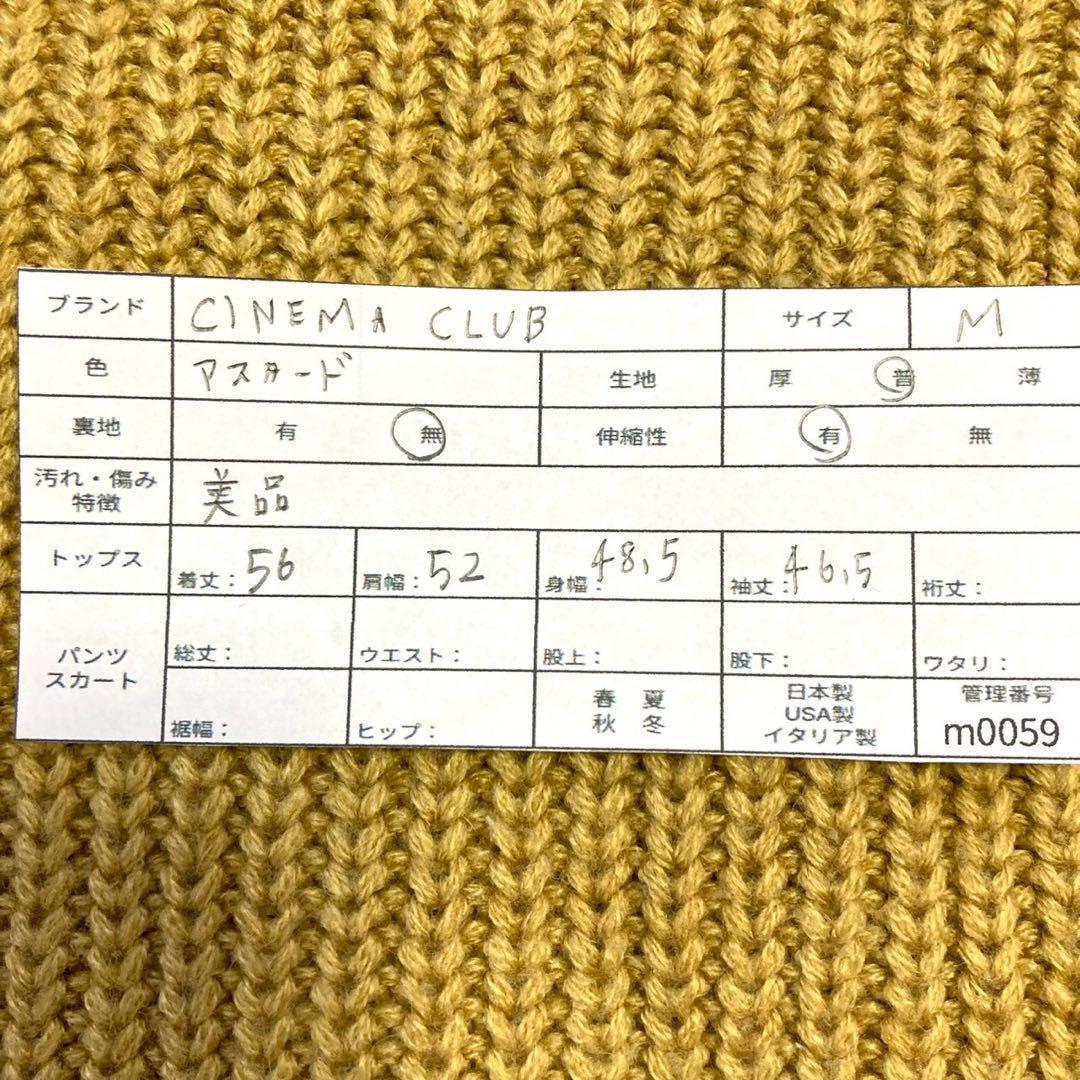 ブランド CINEMA CLUB サイズ M
色 アスタード 生地 厚 普 薄
裏地 有 無 伸縮性 有 無
汚れ・傷み
特徴 美品
トップス 着丈：56 肩幅：52 身幅：48,5 袖丈：46,5 裄丈：
パンツ
スカート
総丈： ウエスト： 股上： 股下： ワタリ：
裾幅： ヒップ：
春 夏
秋 冬
日本製
USA製
イタリア製
管理番号
m0059